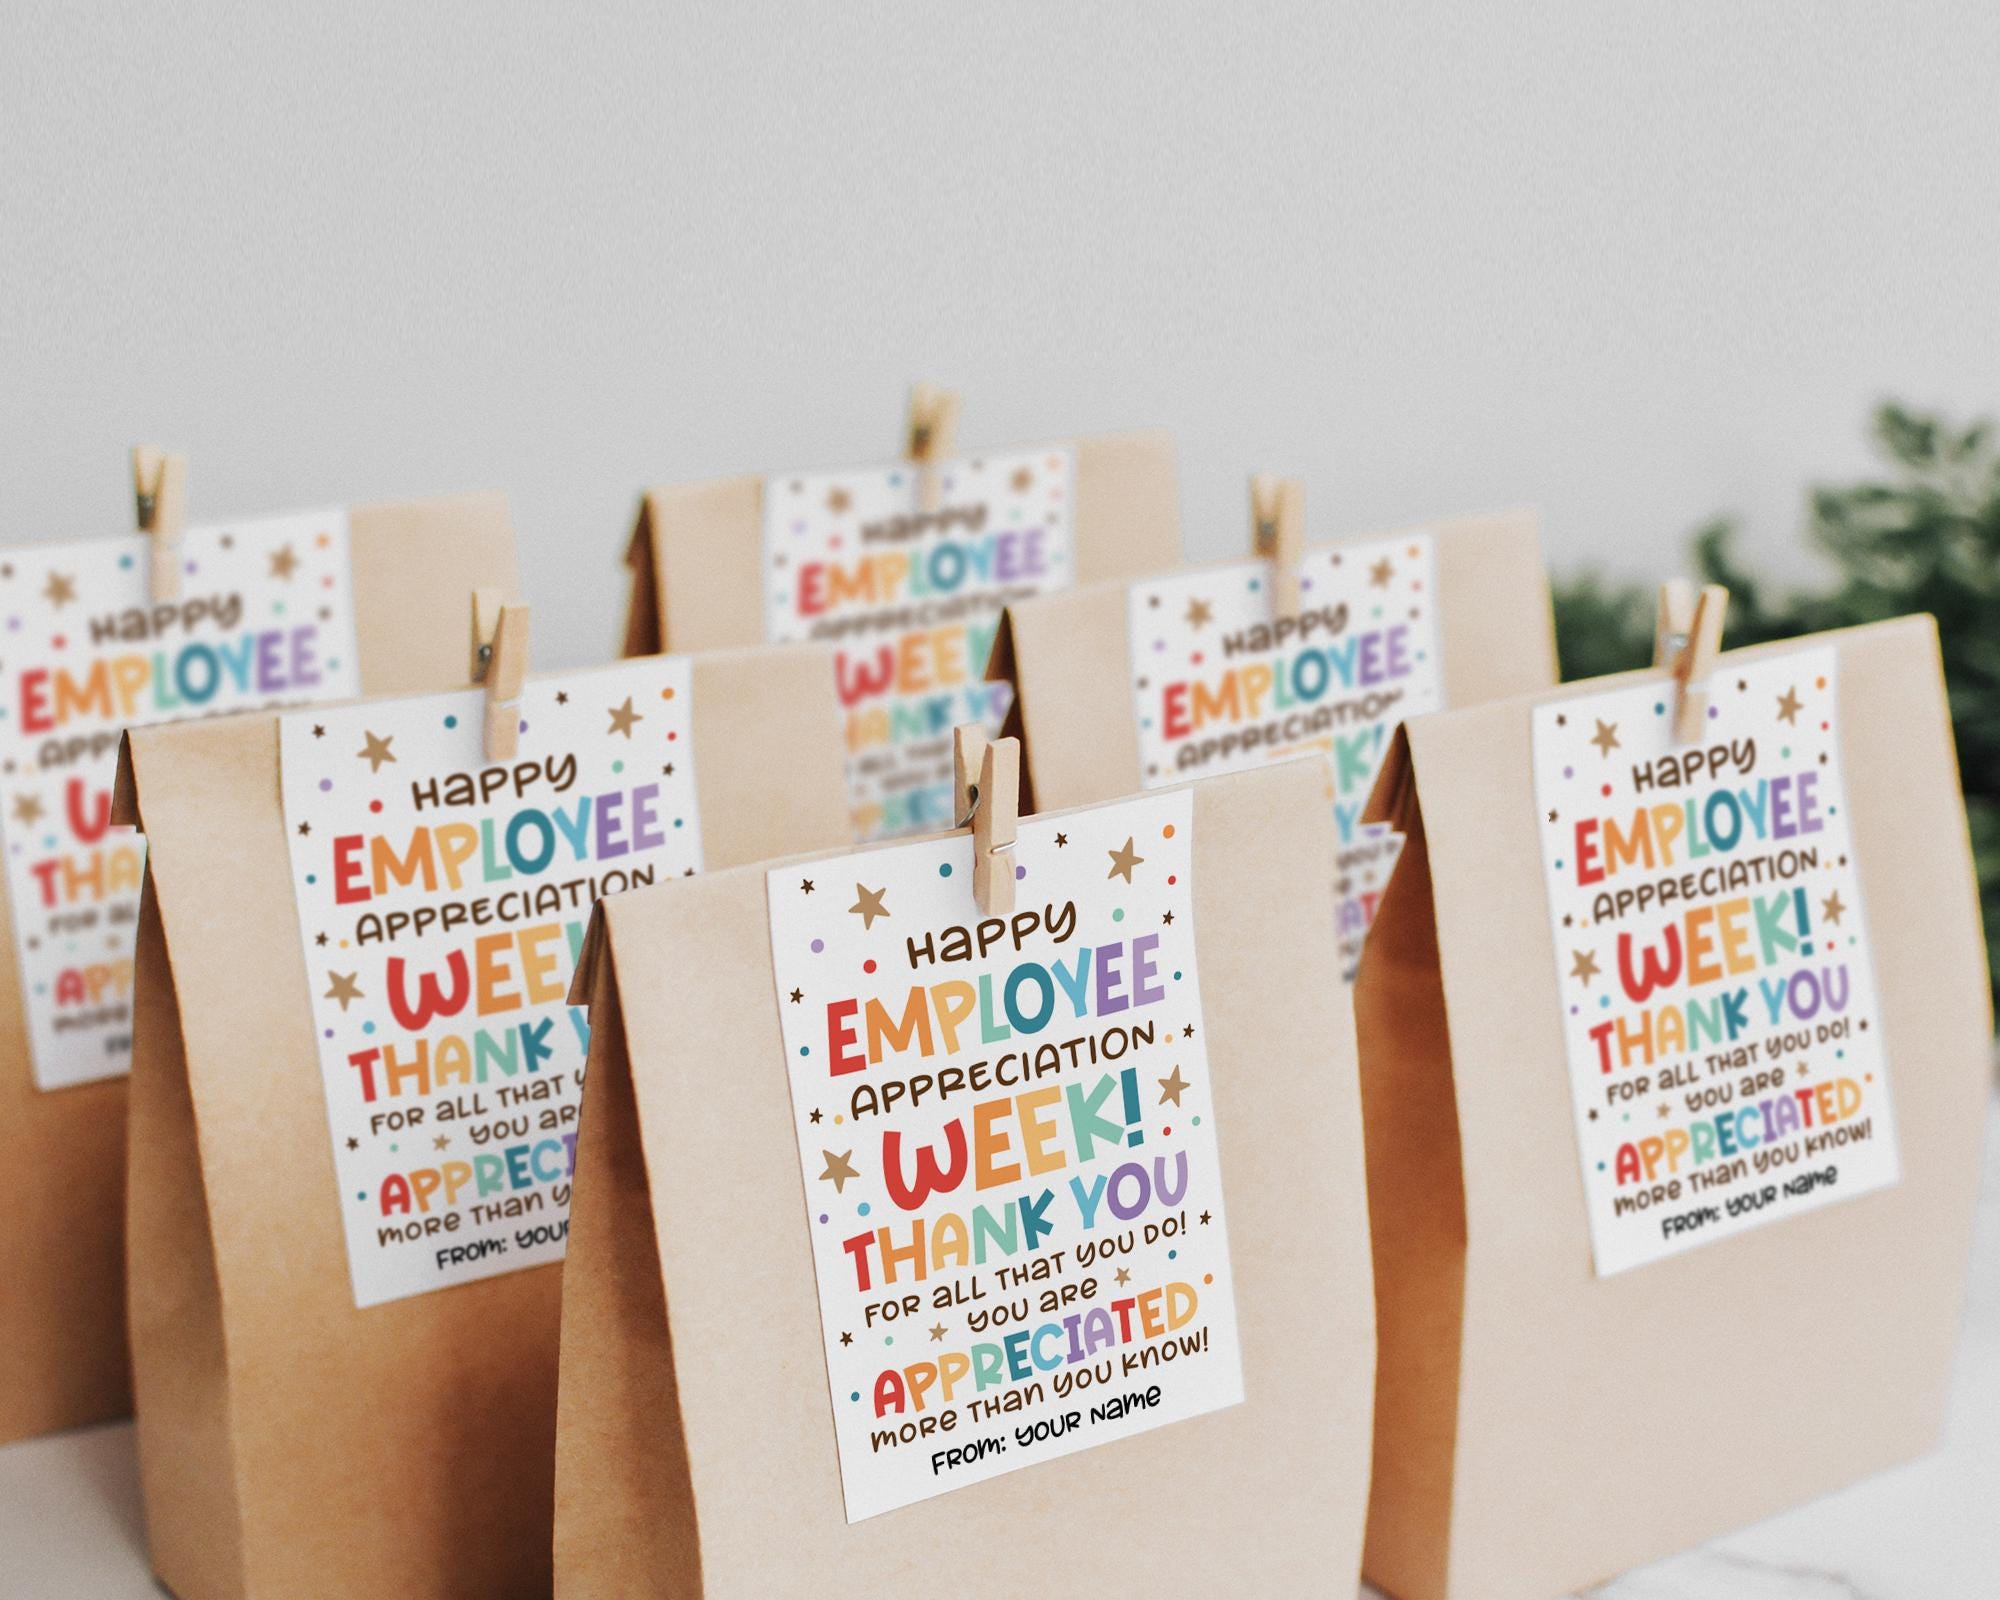 Happy
EMPLOYEE
APPRECIATION
WEEK!
THANK YOU
FOR all THAT YOU DO!
YOU are
APPRECIATED
more THan YOU KNOW!
FROM: YOUR Name
Happy
EMPLOYEE
APPRECIATION
WEEK!
THANK YOU
FOR all THAT YOU DO!
YOU are
APPRECIATED
more THan YOU KNOW!
FROM: YOUR Name
Happy
EMPLOYEE
APPRECIATION
THANK
FOR all THAT
YOU
more THan
FROM: YOUR
Happy
EMPLOYEE
Happy
EMPLOYEE
APPRECIATION
Happy
EMPLOYEE
APPRECIATION